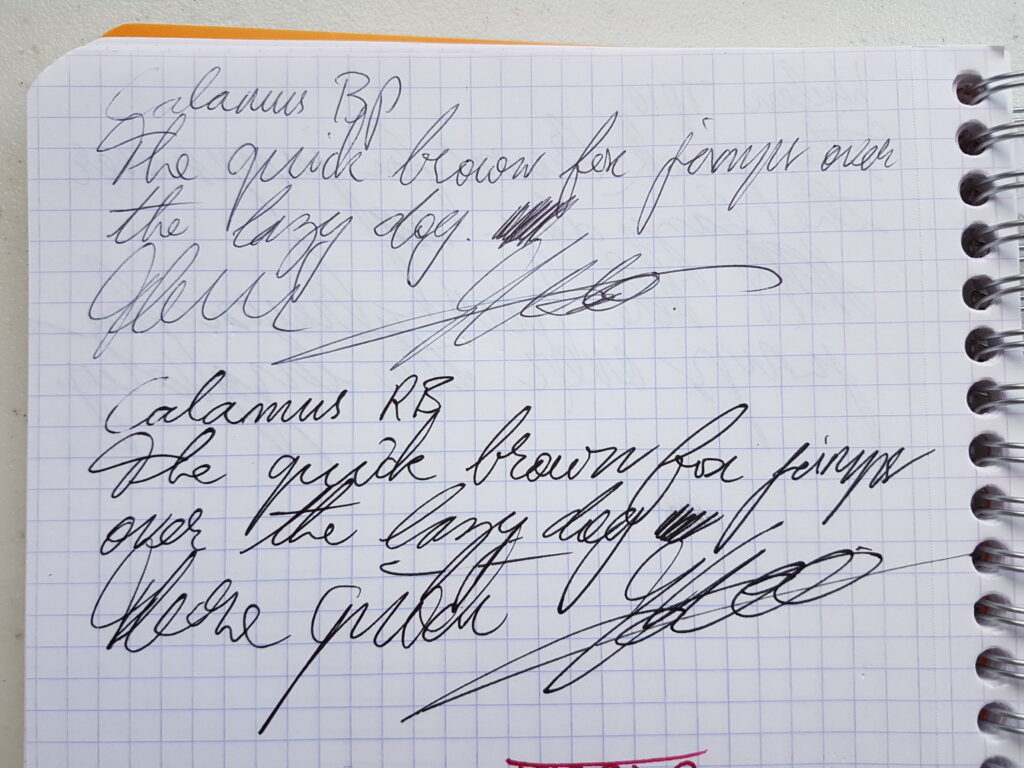 Calamus BP
The quick brown fox jumps over
the lazy dog.
Calamus RB
The quick brown fox jumps
over the lazy dog